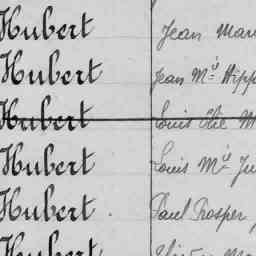 Hubert Jean Mari
Hubert Jean Mie Hipp
Hubert Louis Elie M
Hubert Louis Mie Ju
Hubert Paul Prosper
Hubert